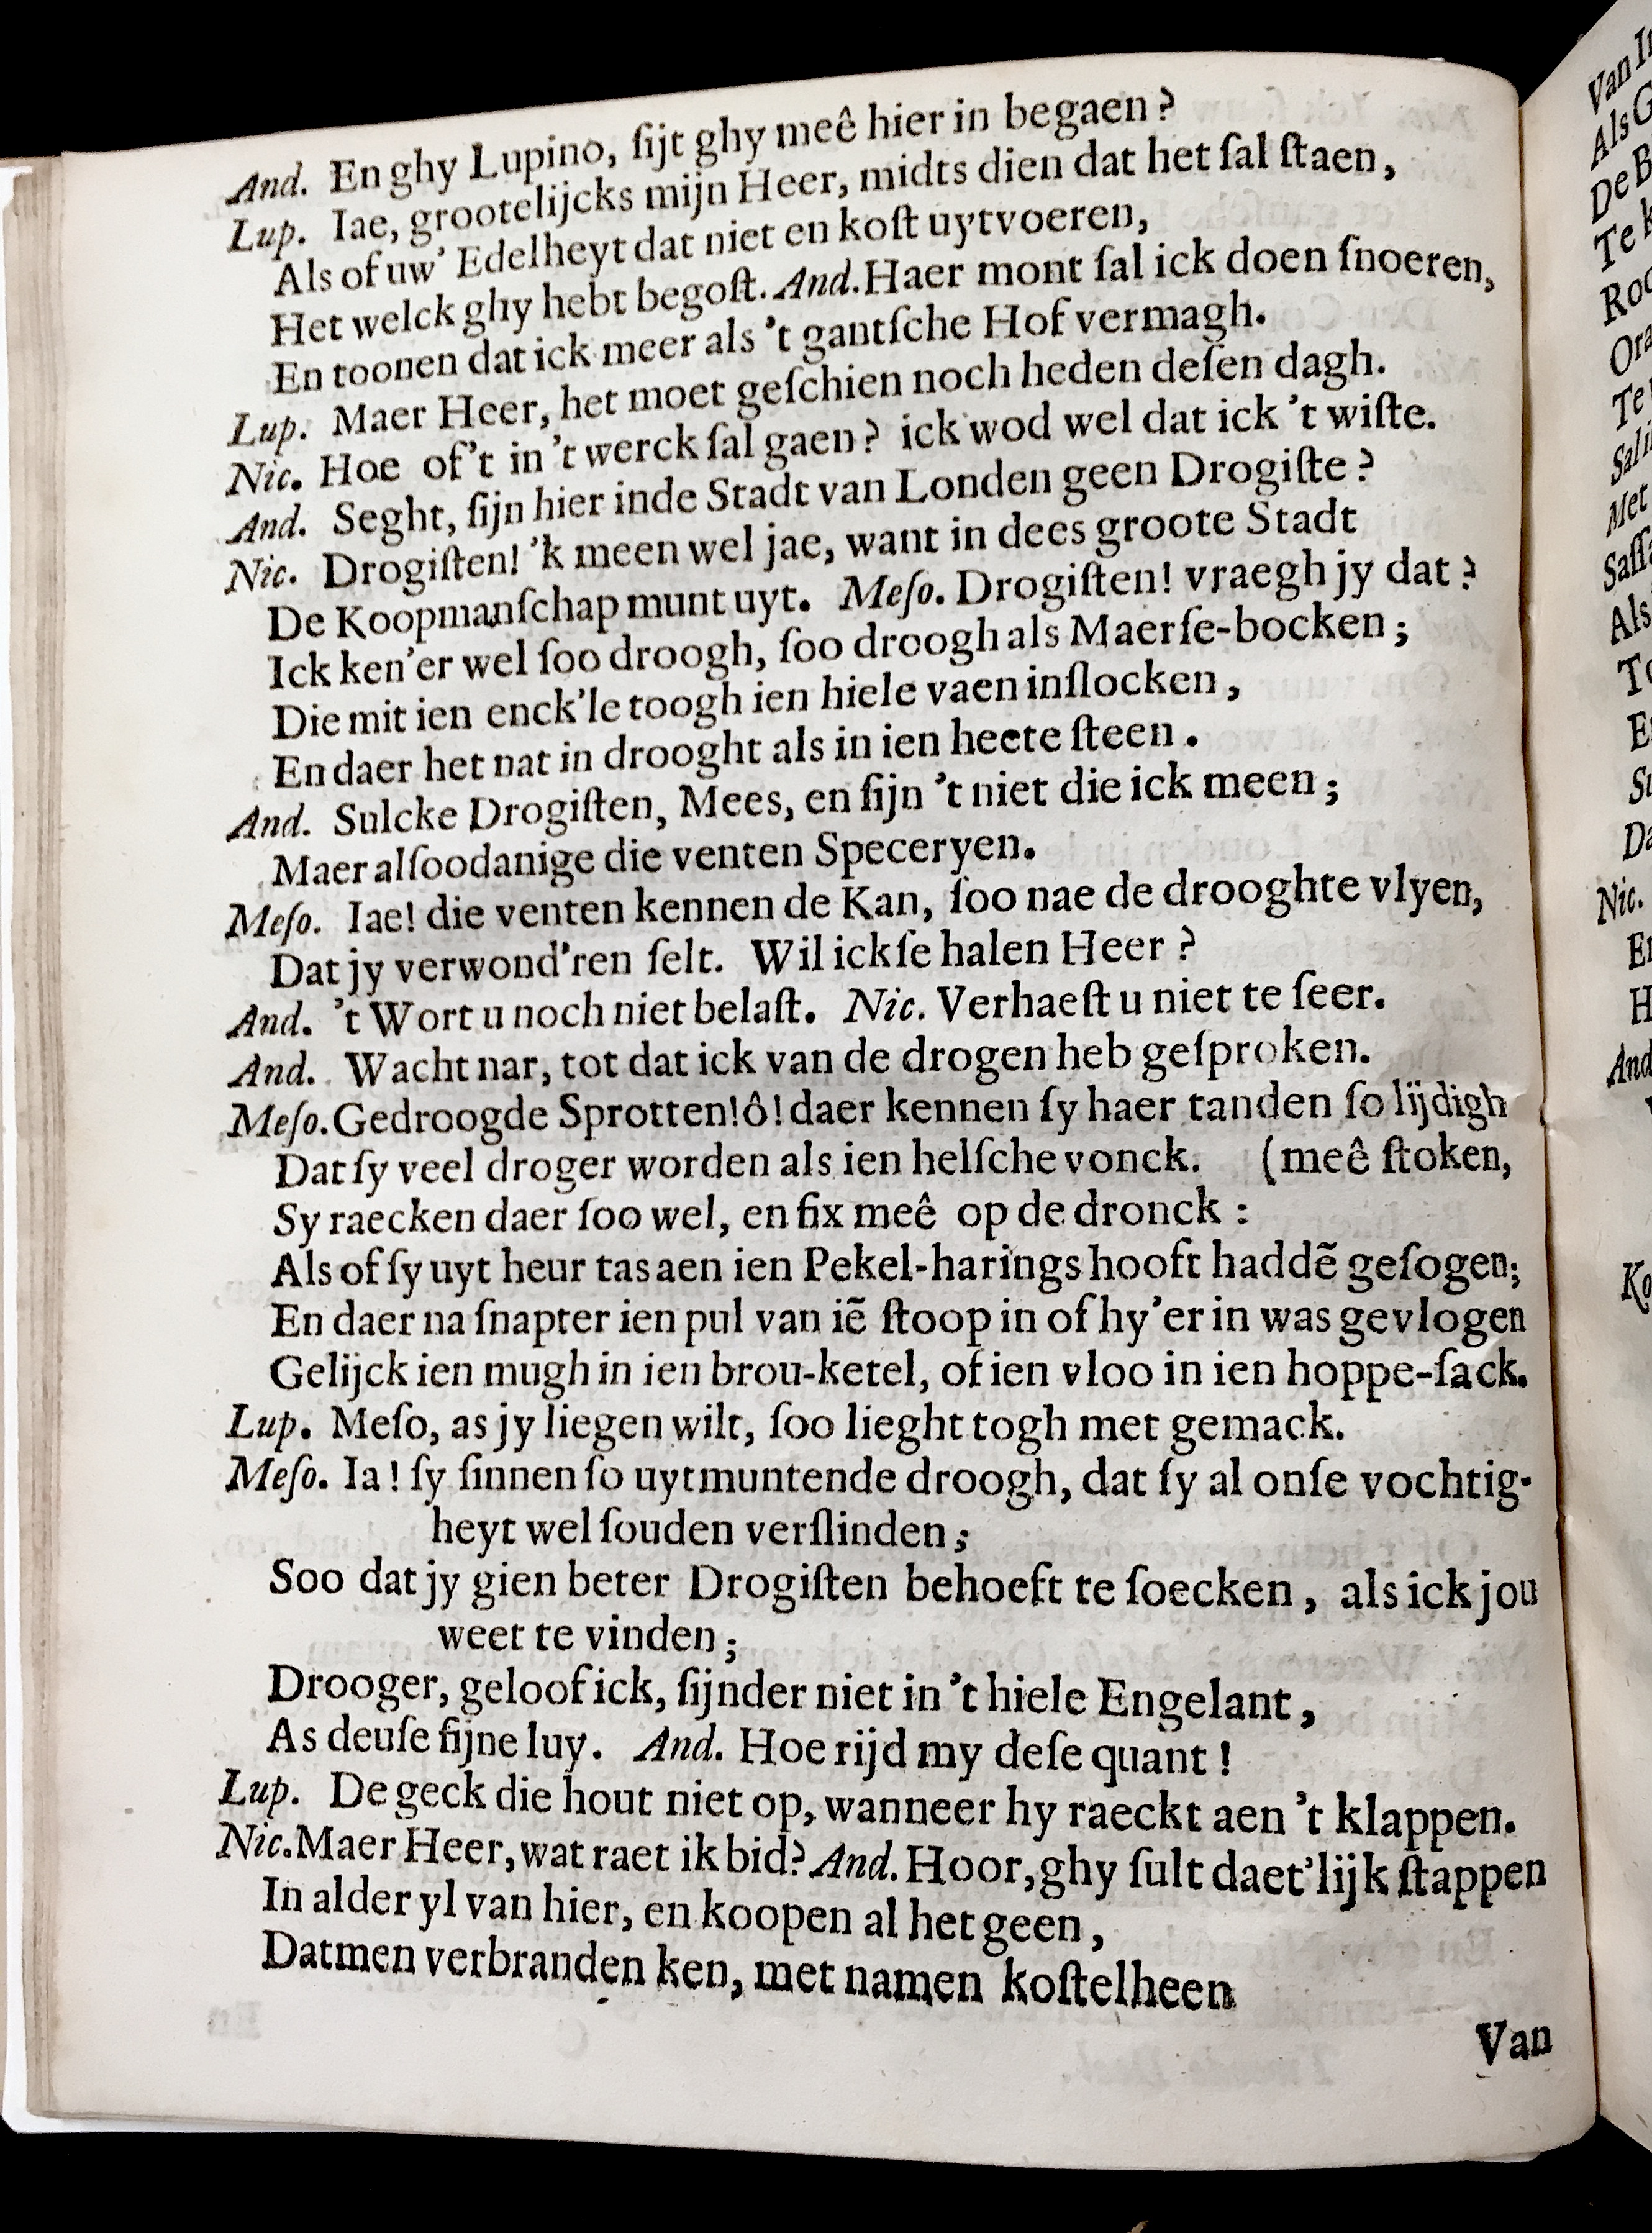 And. En ghy Lupino, ſijt ghy meê hier in begaen?
Lup. Iae, grootelijcks mijn Heer, midts dien dat het ſal ſtaen,
Als of uw' Edelheyt dat niet en koſt uytvoeren,
Het welck ghy hebt begoſt. And. Haer mont ſal ick doen ſnoeren,
En toonen dat ick meer als 't gantſche Hof vermagh.
Lup. Maer Heer, het moet geſchien noch heden deſen dagh.
Nic. Hoe of't in 't werck ſal gaen? ick wod wel dat ick 't wiſte.
And. Seght, ſijn hier inde Stadt van Londen geen Drogiſte?
Nic. Drogiſten! 'k meen wel jae, want in dees groote Stadt
De Koopmanſchap munt uyt. Meſo. Drogiſten! vraegh jy dat?
Ick ken'er wel ſoo droogh, ſoo droogh als Maerſe-bocken;
Die mit ien enck'le toogh ien hiele vaen inſlocken,
En daer het nat in drooght als in ien heete ſteen.
And. Sulcke Drogiſten, Mees, en ſijn 't niet die ick meen;
Maer alſoodanige die venten Speceryen.
Meſo. Iae! die venten kennen de Kan, ſoo nae de drooghte vlyen,
Dat jy verwond'ren ſelt. Wil ickſe halen Heer?
And. 't Wort u noch niet belaſt. Nic. Verhaeſt u niet te ſeer.
And. Wacht nar, tot dat ick van de drogen heb geſproken.
Meſo. Gedroogde Sprotten! ô! daer kennen ſy haer tanden ſo lijdigh
Dat ſy veel droger worden als ien helſche vonck. (meê ſtoken,
Sy raecken daer ſoo wel, en fix meê op de dronck:
Als of ſy uyt heur tas aen ien Pekel-harings hooft haddẽ geſogen;
En daer na ſnapter ien pul van iẽ ſtoop in of hy'er in was gevlogen
Gelijck ien mugh in ien brou-ketel, of ien vloo in ien hoppe-ſack.
Lup. Meſo, as jy liegen wilt, ſoo lieght togh met gemack.
Meſo. Ia! ſy ſinnen ſo uytmuntende droogh, dat ſy al onſe vochtig-
heyt wel ſouden verſlinden;
Soo dat jy gien beter Drogiſten behoeft te ſoecken, als ick jou
weet te vinden;
Drooger, geloof ick, ſijnder niet in 't hiele Engelant,
As deuſe fijne luy. And. Hoe rijd my deſe quant!
Lup. De geck die hout niet op, wanneer hy raeckt aen 't klappen.
Nic. Maer Heer, wat raet ik bid? And. Hoor, ghy ſult daet'lijk ſtappen
In alder yl van hier, en koopen al het geen,
Datmen verbranden ken, met namen koſtelheen
Van